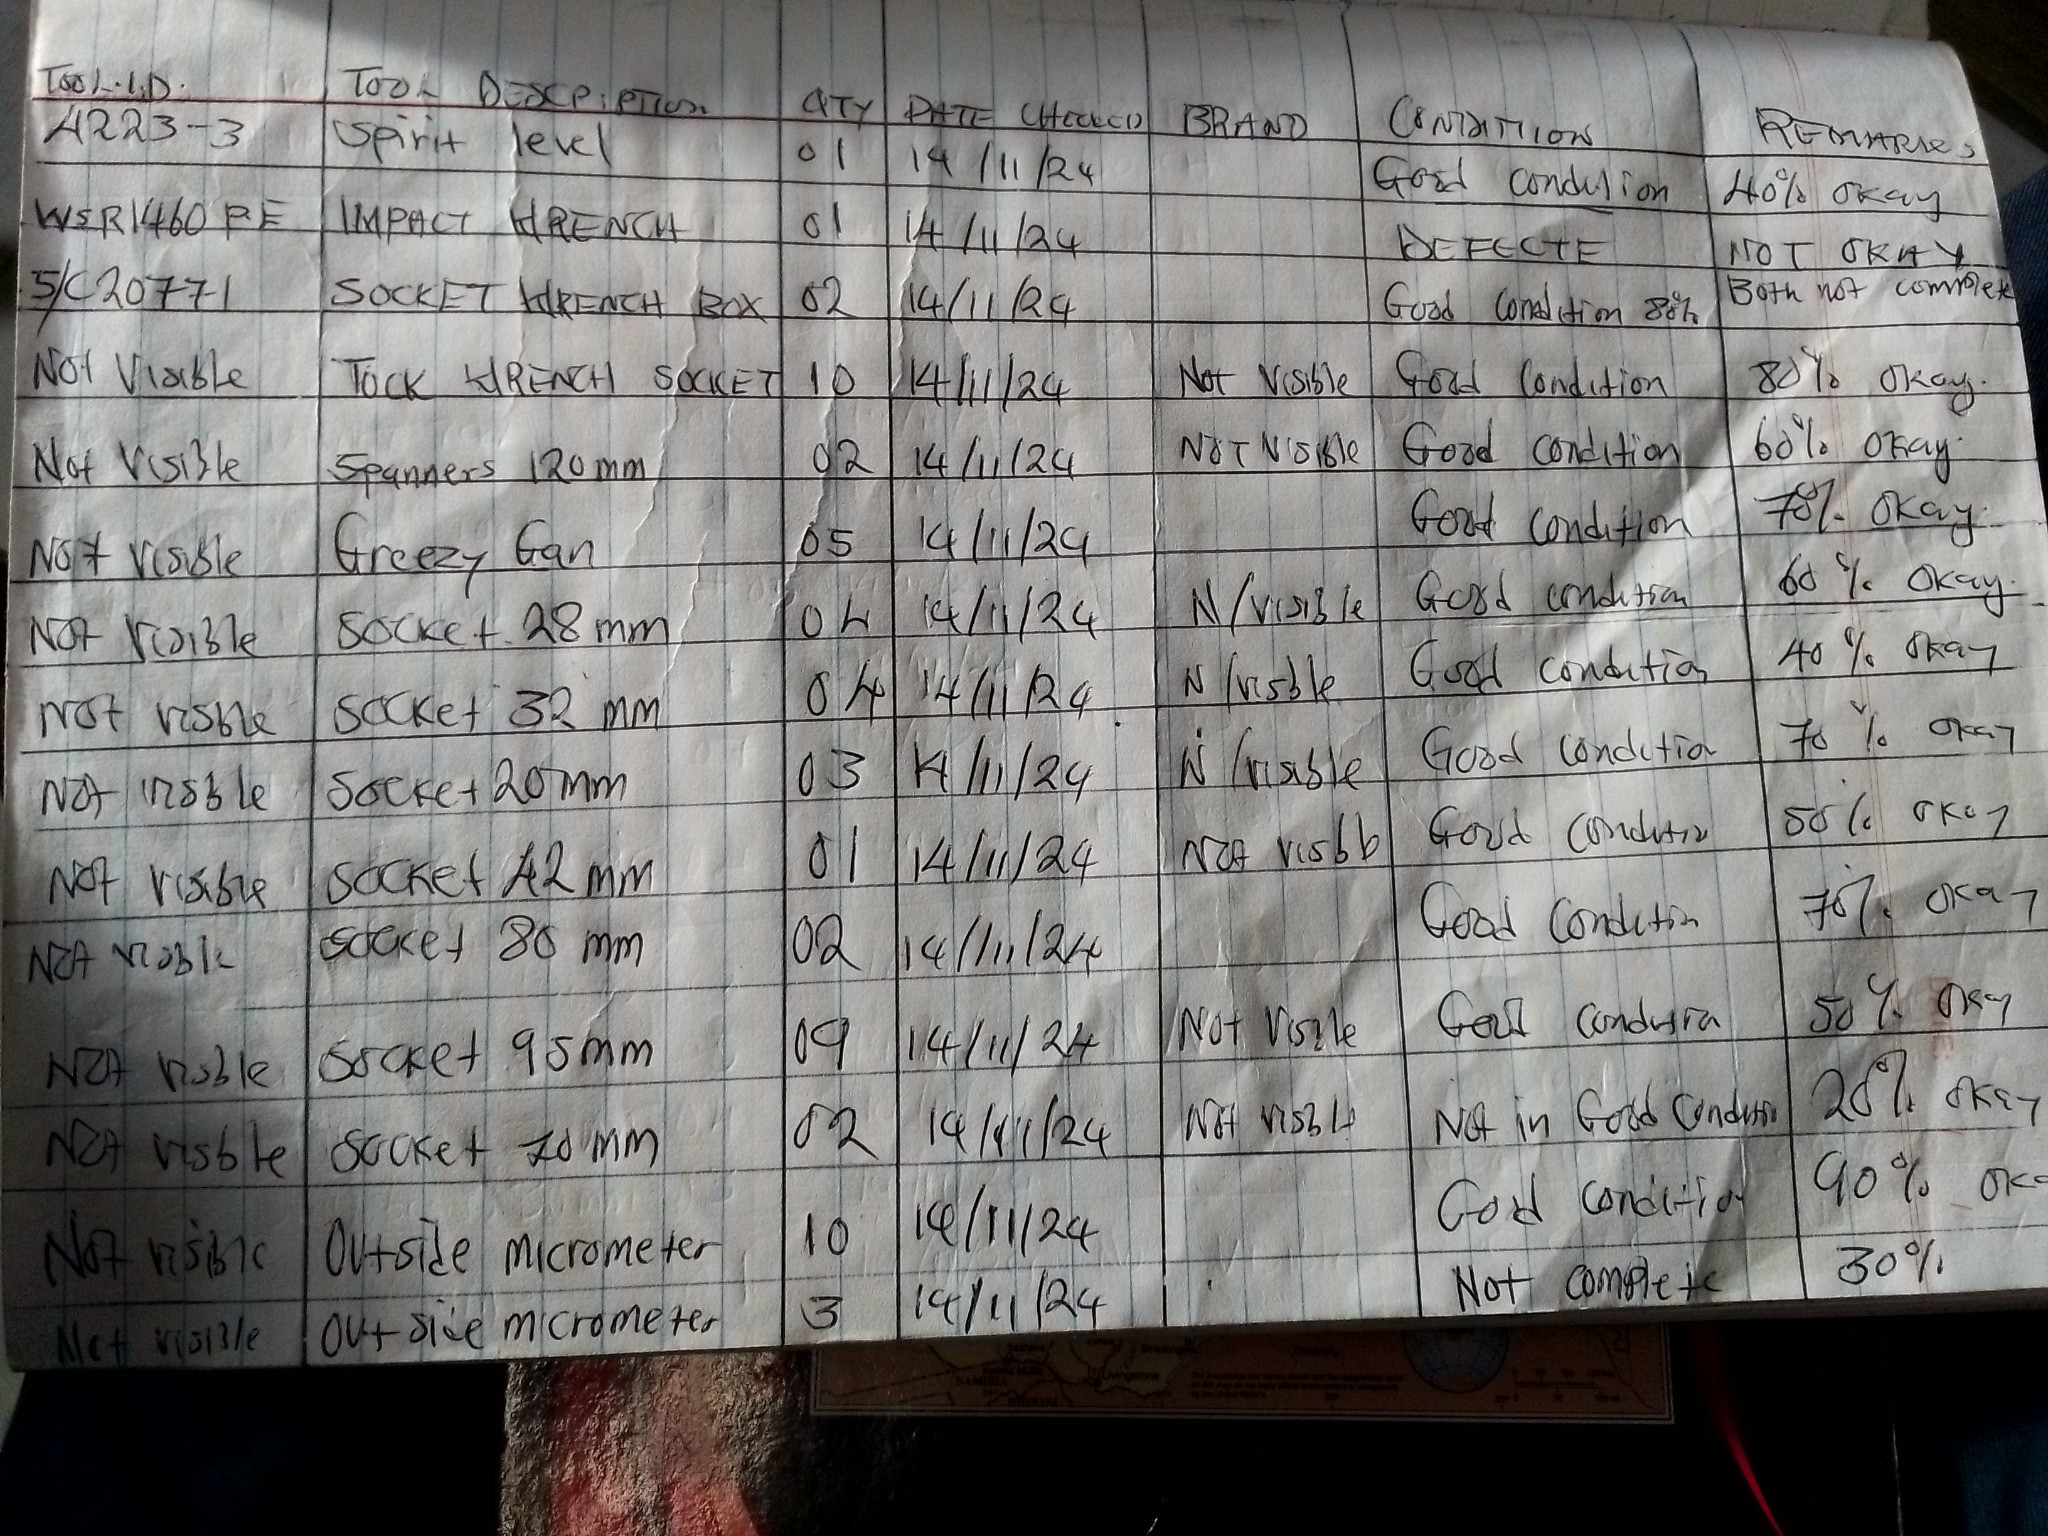 TOOL.I.D. TOOL DESCRIPTION QTY DATE CHECKED BRAND CONDITION REMARKS
A223-3 Spirit level 01 14/11/24 Good condition 40% okay
WSR1460 PE IMPACT WRENCH 01 14/11/24 DEFECTE NOT OKAY
S/C20771 SOCKET WRENCH BOX 02 14/11/24 Good condition 80% Both not complete
Not Visible TOCK WRENCH SOCKET 10 14/11/24 Not Visible Good condition 80% okay.
Not Visible Spanners 120mm 02 14/11/24 NOT VISIBLE Good condition 60% okay.
Not Visible Greezy Gan 05 14/11/24 Good condition 70% okay.
Not Visible Socket 28mm 04 14/11/24 N/visible Good condition 60% okay.
Not visble Socket 32 mm 04 14/11/24 N/visble Good condition 40% okay
Not visble Socket 20mm 03 14/11/24 N/visible Good condition 70% okay
Not visible Socket 42mm 01 14/11/24 Not visbb Good condition 50% okay
Not visble Socket 80 mm 02 14/11/24 Good condition 70% okay
Not visble Socket 95mm 09 14/11/24 Not visible Good condition 50% okay
Not visble Socket 70mm 02 14/11/24 Not visble Not in Good condition 20% okay
Not visible Outside micrometer 10 14/11/24 Good condition 90% oka
Not visible Outside micrometer 3 14/11/24 Not complete 30%
NAMIBIA
Livingstone